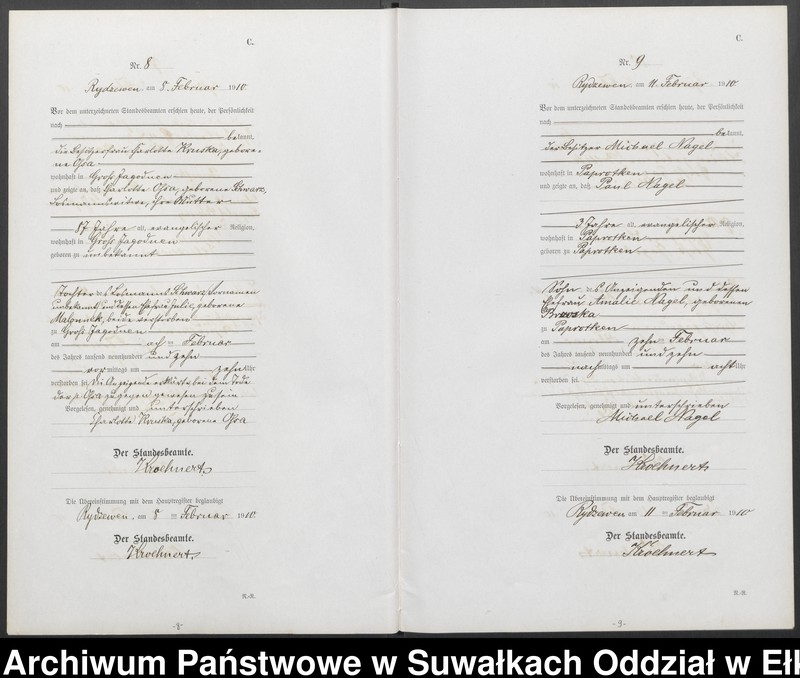 C.
Nr. 8
Rydzewen, am 8. Februar 1910
Vor dem unterzeichneten Standesbeamten erschien heute, der Persönlichkeit
nach
bekannt,
die Besitzerfrau Charlotte Kruska, gebore-
ne Osa
wohnhaft in Groß Jagodnen
und zeigte an, daß Charlotte Osa, geborene Schwarz,
Losmannswitwe, ihre Mutter
Jahre alt, evangelischer Religion,
wohnhaft in Groß Jagodnen
geboren zu unbekannt
Tochter des Losmanns Schwarz, Vornamen
unbekannt, und dessen Ehefrau Julie, geborene
beide verstorben
zu Groß Jagodnen
am acht ten Februar
des Jahres tausend neunhundert und zehn
vormittags um zehn Uhr
verstorben sei. Die Anzeigende erklärte, bei dem Tode
der p. Osa zugegen gewesen zu sein
Vorgelesen, genehmigt und unterschrieben
Charlotte Kruska, geborene Osa
Der Standesbeamte.
Kroehnert
Die Übereinstimmung mit dem Hauptregister beglaubigt
Rydzewen, am 8 ten Februar 1910
Der Standesbeamte.
Kroehnert
R.-R.
-8-
C.
Nr. 9
Rydzewen, am 11. Februar 1910
Vor dem unterzeichneten Standesbeamten erschien heute, der Persönlichkeit
nach
bekannt,
der Besitzer Michael Nagel
wohnhaft in Paprotken
und zeigte an, daß Paul Nagel
3 Jahre alt, evangelischer Religion,
wohnhaft in Paprotken
geboren zu Paprotken
Sohn des Anzeigenden und dessen
Ehefrau Amalie Nagel, geborenen
zu Paprotken
am zehn ten Februar
des Jahres tausend neunhundert und zehn
nachmittags um acht Uhr
verstorben sei
Vorgelesen, genehmigt und unterschrieben
Michael Nagel
Der Standesbeamte.
Kroehnert
Die Übereinstimmung mit dem Hauptregister beglaubigt
Rydzewen am 11 ten Februar 1910
Der Standesbeamte.
Kroehnert
R.-R.
-9-
Archiwum Państwowe w Suwałkach Oddział w Ełk